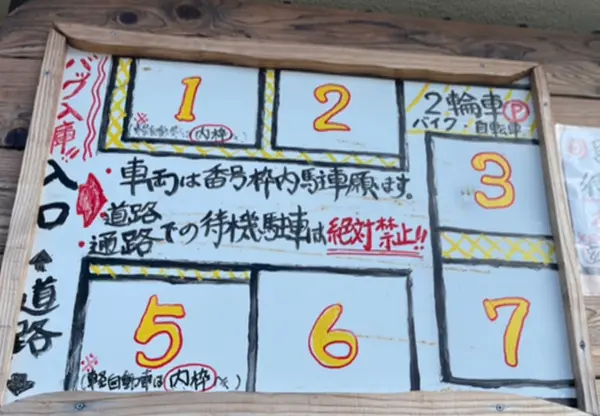 バック入庫!!
1
内枠
2
2輪車 P
バイク・自転車
3
・車両は番号枠内駐車願ます。
道路
・通路での待機駐車は絶対禁止!!
入口
道路
5
※
(軽自動車は内枠へ)
6
7